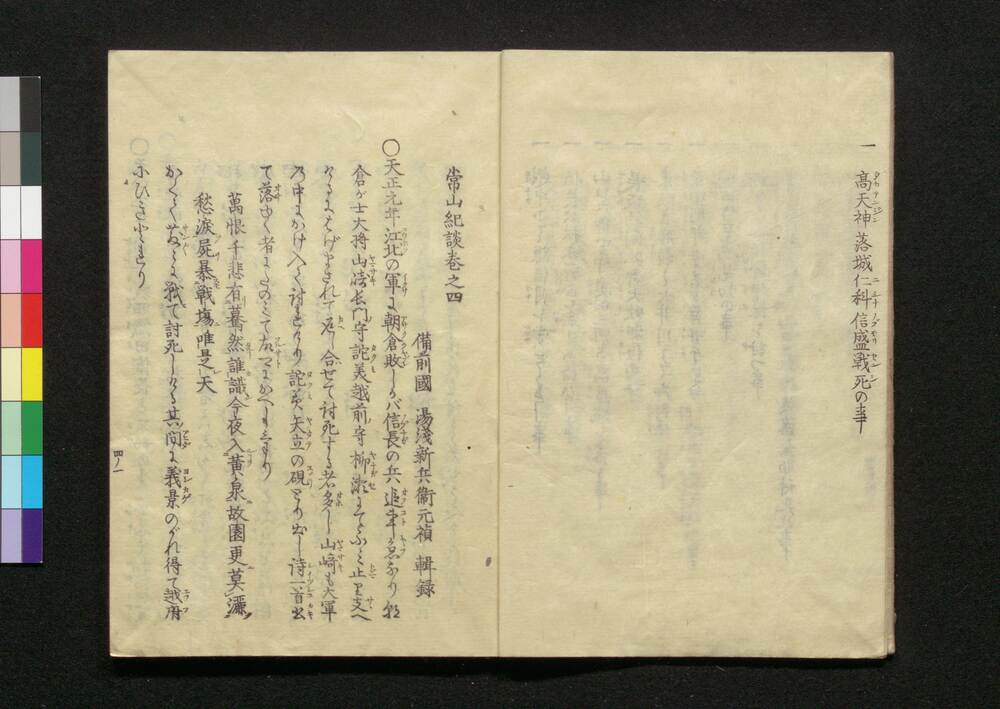 一 高天神落城仁科信盛戦死の事
常山紀談巻之四
備前國 湯淺新兵衞元禎 輯録
○天正元年江北の軍に朝倉敗しかバ信長の兵追事急なり朝
倉が士大将山崎長門守詫美越前守柳瀬にてふみ止り支へ
けるにはげまされて返し合せて討死する者多し山崎も大軍
の中にかけ入て討死せり詫美矢立の硯とり出し詩一首出
て落ゆく者にたのミて
萬恨千悲有驀然誰識今夜入黄泉故園更莫灑
愁涙屍暴戰塲唯是天
かくて苦に戦て討死しける其間に義景のがれ得て越府
にひきとれり
○
四ノ一